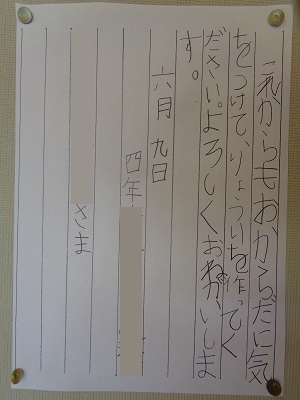 これからもおからだに気
をつけて、りょうりを作ってく
ださい。よろしくおねがいしま
す。
六月九日
四年
さま